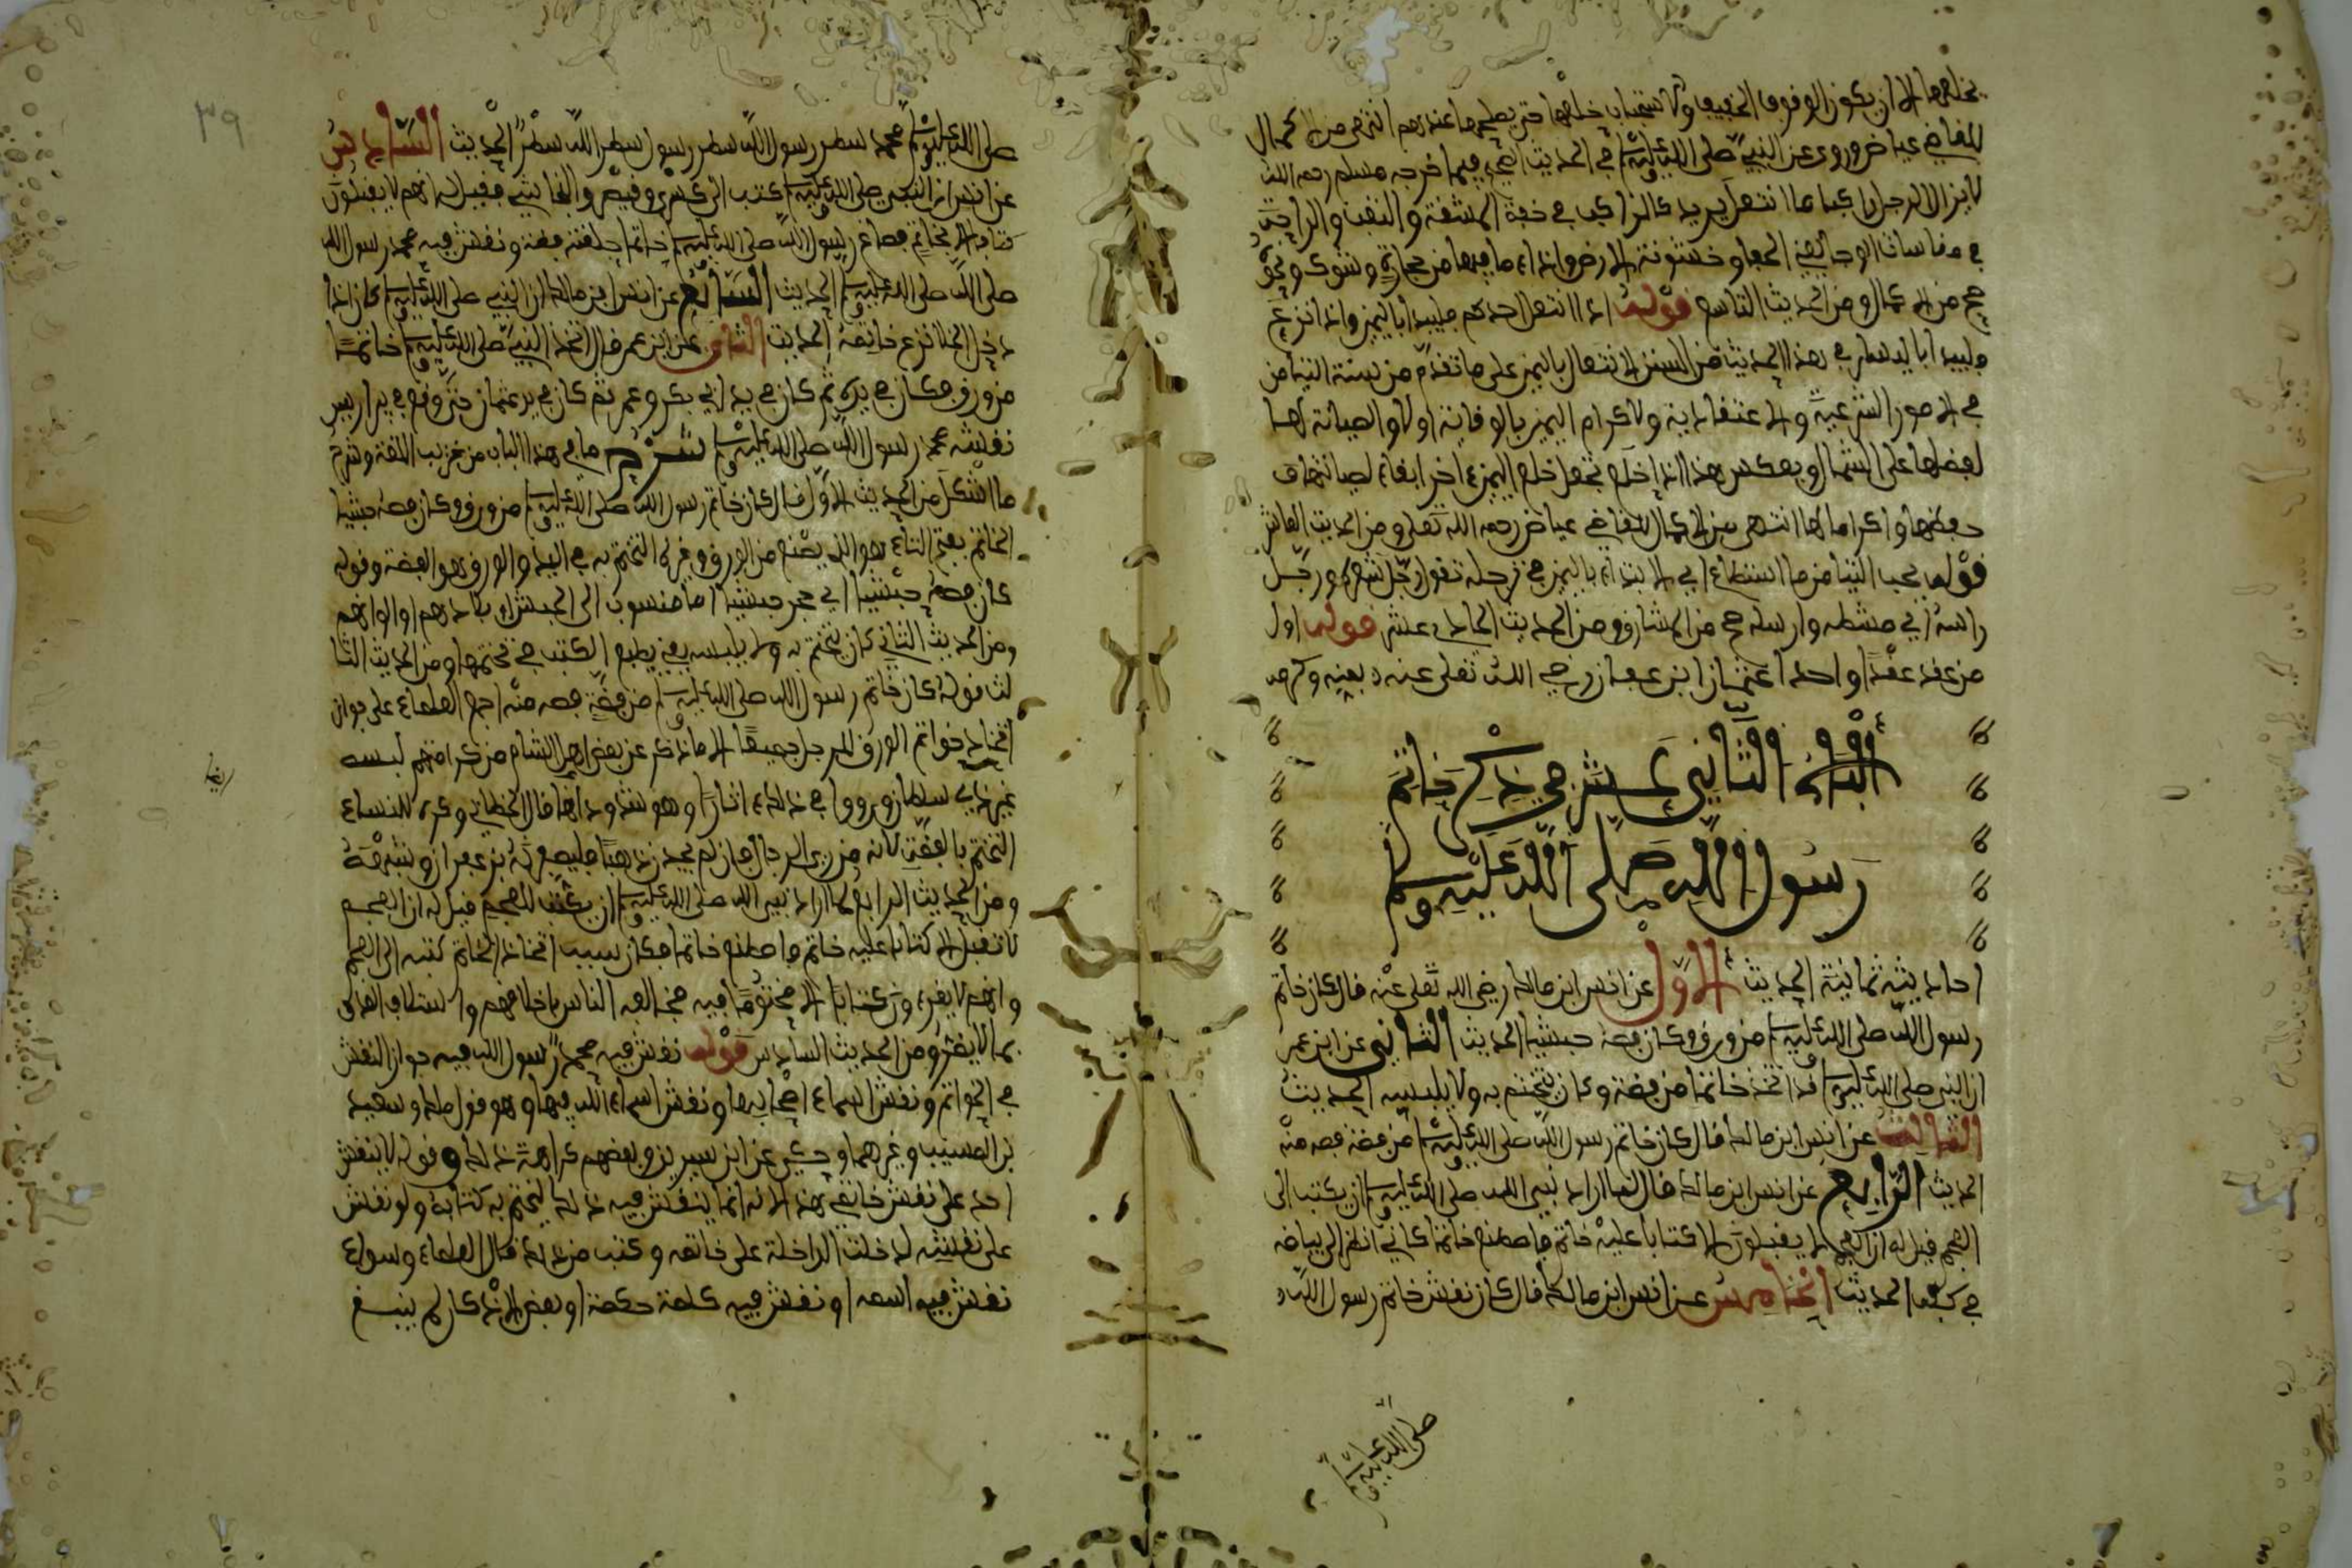 يخلعها الا ان يكون الوقوف الخفيف ولا استحباب خلعها حتى يصلحها عندهم انتهى من الاكمال
للقاضي عياض وروي عن النبي صلى الله عليه وسلم في الحديث الصحيح فيما خرجه مسلم رحمه الله
لا يزال الرجل راكبا ما انتعل يريد كالراكب في خفة المشقة والتعب والراحة
في مقاسات الوجا يعني الحفا وخشونة الارض واذاء ما فيها من حجارة وشوك ونحو
صح من الاكمال ومن الحديث التاسع قوله اذا انتعل احدكم فليبدأ باليمين واذا نزع
فليبدأ باليسار في هذا الحديث من السنن الانتعال باليمين على ما تقدم من سنة التيامن
في الامور الشرعية والاعتقادية ولاكرام اليمين بالوقاية اولا والصيانة لها
لفضلها على الشمال وبعكس هذا اذا خلع يجعل خلع اليمين اخيرا ابقاء لصيانتها في
بعضها واكراما لها انتهى من الاكمال للقاضي عياض رحمه الله تعلى ومن الحديث العاشر
قوله يحب التيامن ما استطاع اي الابتداء باليمين في ترجله تقول رجل شعره ورجل
راسه اي مشطه وارسله صح من المشارق ومن الحديث الحادي عشر قوله اول
من عقد عقدا واحدا عثمان ابن عفان رضي الله تعلى عنه
الباب الثاني عشر في ذكر خاتم
رسول الله صلى الله عليه وسلم
احاديثه ثمانية الحديث الاول عن انس ابن مالك رضي الله تعلى عنه قال كان خاتم
رسول الله صلى الله عليه وسلم من ورق وكان فصه حبشيا الحديث الثاني عن ابن عمر
ان النبي صلى الله عليه وسلم قد اتخذ خاتما من فضة وكان يتختم به ولا يلبسه الحديث
الثالث عن انس ابن مالك قال كان خاتم رسول الله صلى الله عليه وسلم من فضة فصه منه
الحديث الرابع عن انس ابن مالك قال لما اراد نبي الله صلى الله عليه وسلم ان يكتب الى
العجم قيل له ان العجم لا يقبلون الا كتابا عليه خاتم فاصطنع خاتما كاني انظر الى بياضه
في كفه الحديث الخامس عن انس ابن مالك قال كان نقش خاتم رسول الله
صلى الله عليه وسلم
٣٩
صلى الله عليه وسلم محمد سطر رسول الله سطر رسول سطر الله سطر الحديث السادس
عن انس ان النبي صلى الله عليه وسلم كتب الى كسرى وقيصر والنجاشي فقيل له انهم لا يقبلون
كتابا الا بخاتم فصاغ رسول الله صلى الله عليه وسلم خاتما حلقته فضة ونقش فيه محمد رسول الله
صلى الله صلى الله عليه وسلم الحديث السابع عن انس ابن مالك ان النبي صلى الله عليه وسلم كان اذا
دخل الخلا نزع خاتمه الحديث الثامن عن ابن عمر قال اتخذ النبي صلى الله عليه وسلم خاتما
من ورق فكان في يده ثم كان في يد ابي بكر وعمر ثم كان في يد عثمان حتى وقع في بير اريس
نقشه محمد رسول الله صلى الله عليه وسلم شرح ما في هذا الباب من غريب اللغة وشرح
ما اشكل من الحديث الاول قال كان خاتم رسول الله صلى الله عليه وسلم من ورق وكان فصه حبشيا
الخاتم بفتح التاء هو الذي يصنع من الورق وغيره التختم به في اليد والورق هو الفضة وقوله
كان فصه حبشيا اي حجر حبشيا اما منسوب الى الحبش او بلادهم او الوانهم
ومن الحديث الثاني كان يتختم به ولا يلبسه يعني يطبع الكتب في ختمها ومن الحديث الثا
لث قوله كان خاتم رسول الله صلى الله عليه وسلم من فضة فصه منه اجمع العلماء على جواز
اتخاذ خواتم الورق للرجل جميعا الا ما ذكر عن بعض اهل الشام من كراهتهم لبسه
غير ذي سلطان ورووا في ذلك اثارا وهو شذوذ ايضا قال الخطابي وكره للنساء
التختم بالفضة لانه من زي الرجال فان لم يجدن ذهبا فليصفرنه بزعفران وشبهه
ومن الحديث الرابع لما اراد نبي الله صلى الله عليه وسلم ان يكتب للعجم قيل له ان العجم
لا تقبل الا كتابا عليه خاتم فاصطنع خاتما فكان سبب اتخاذ الخاتم كتبه الى العجم
وانهم لا يقرءون كتابا الا مختوما فيه مخالقة الناس باخلاقهم واستئلاف العدو
بما لا يضر ومن الحديث السادس قوله نقش فيه محمد رسول الله فيه جواز النقش
في الخواتم ونقش اسماء اصحابها ونقش اسماء الله فيها وهو قول مالك وسعيد
بن المسيب وغيرهما وحكي عن ابن سيرين وبعضهم كراهة ذلك وقوله لا ينقش
احد على نقش خاتمي هذا لانه انما ينقش فيه ذلك ليختم به كتابه ولو نقش
على نقشه لدخلت الداخلة على خاتمه وكتب من ذلك قال العلماء وسواء
نقش فيه اسمه او نقش فيه كلمة حكمة او بعض الاذكار لم ينبغ